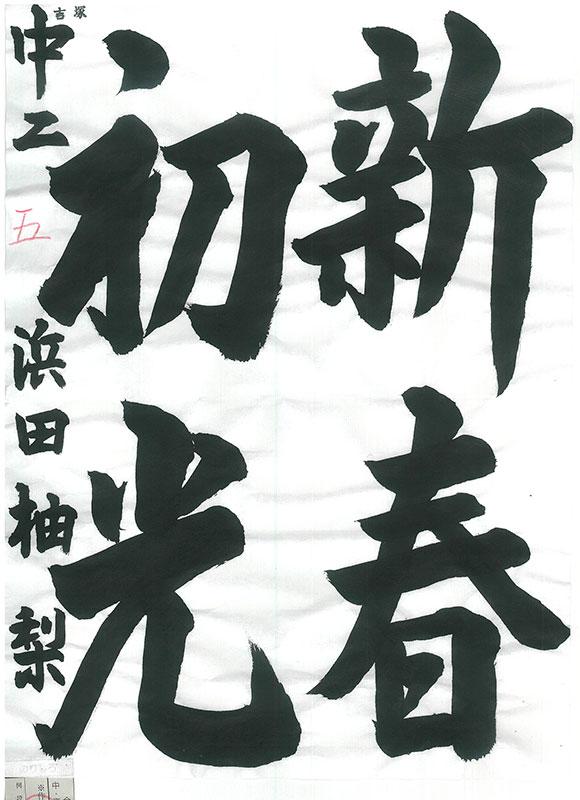 新春
初光
塚
吉
中二
五
浜田柚梨